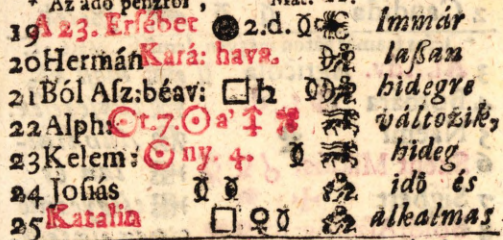 * Az adó pénzről,
19 A 23. Ersébet ● 2.d. Immár
20 Hermán Kará: hava. laſſan
21 Ból Aſz:béav: □ ♄ hidegre
22 Alph: ☉ t.7. ☉ a' ♐ változik,
23 Kelem: ☉ ny. 4. hideg
24 Joſiás idő és
25 Katalin □ ♀ alkalmas